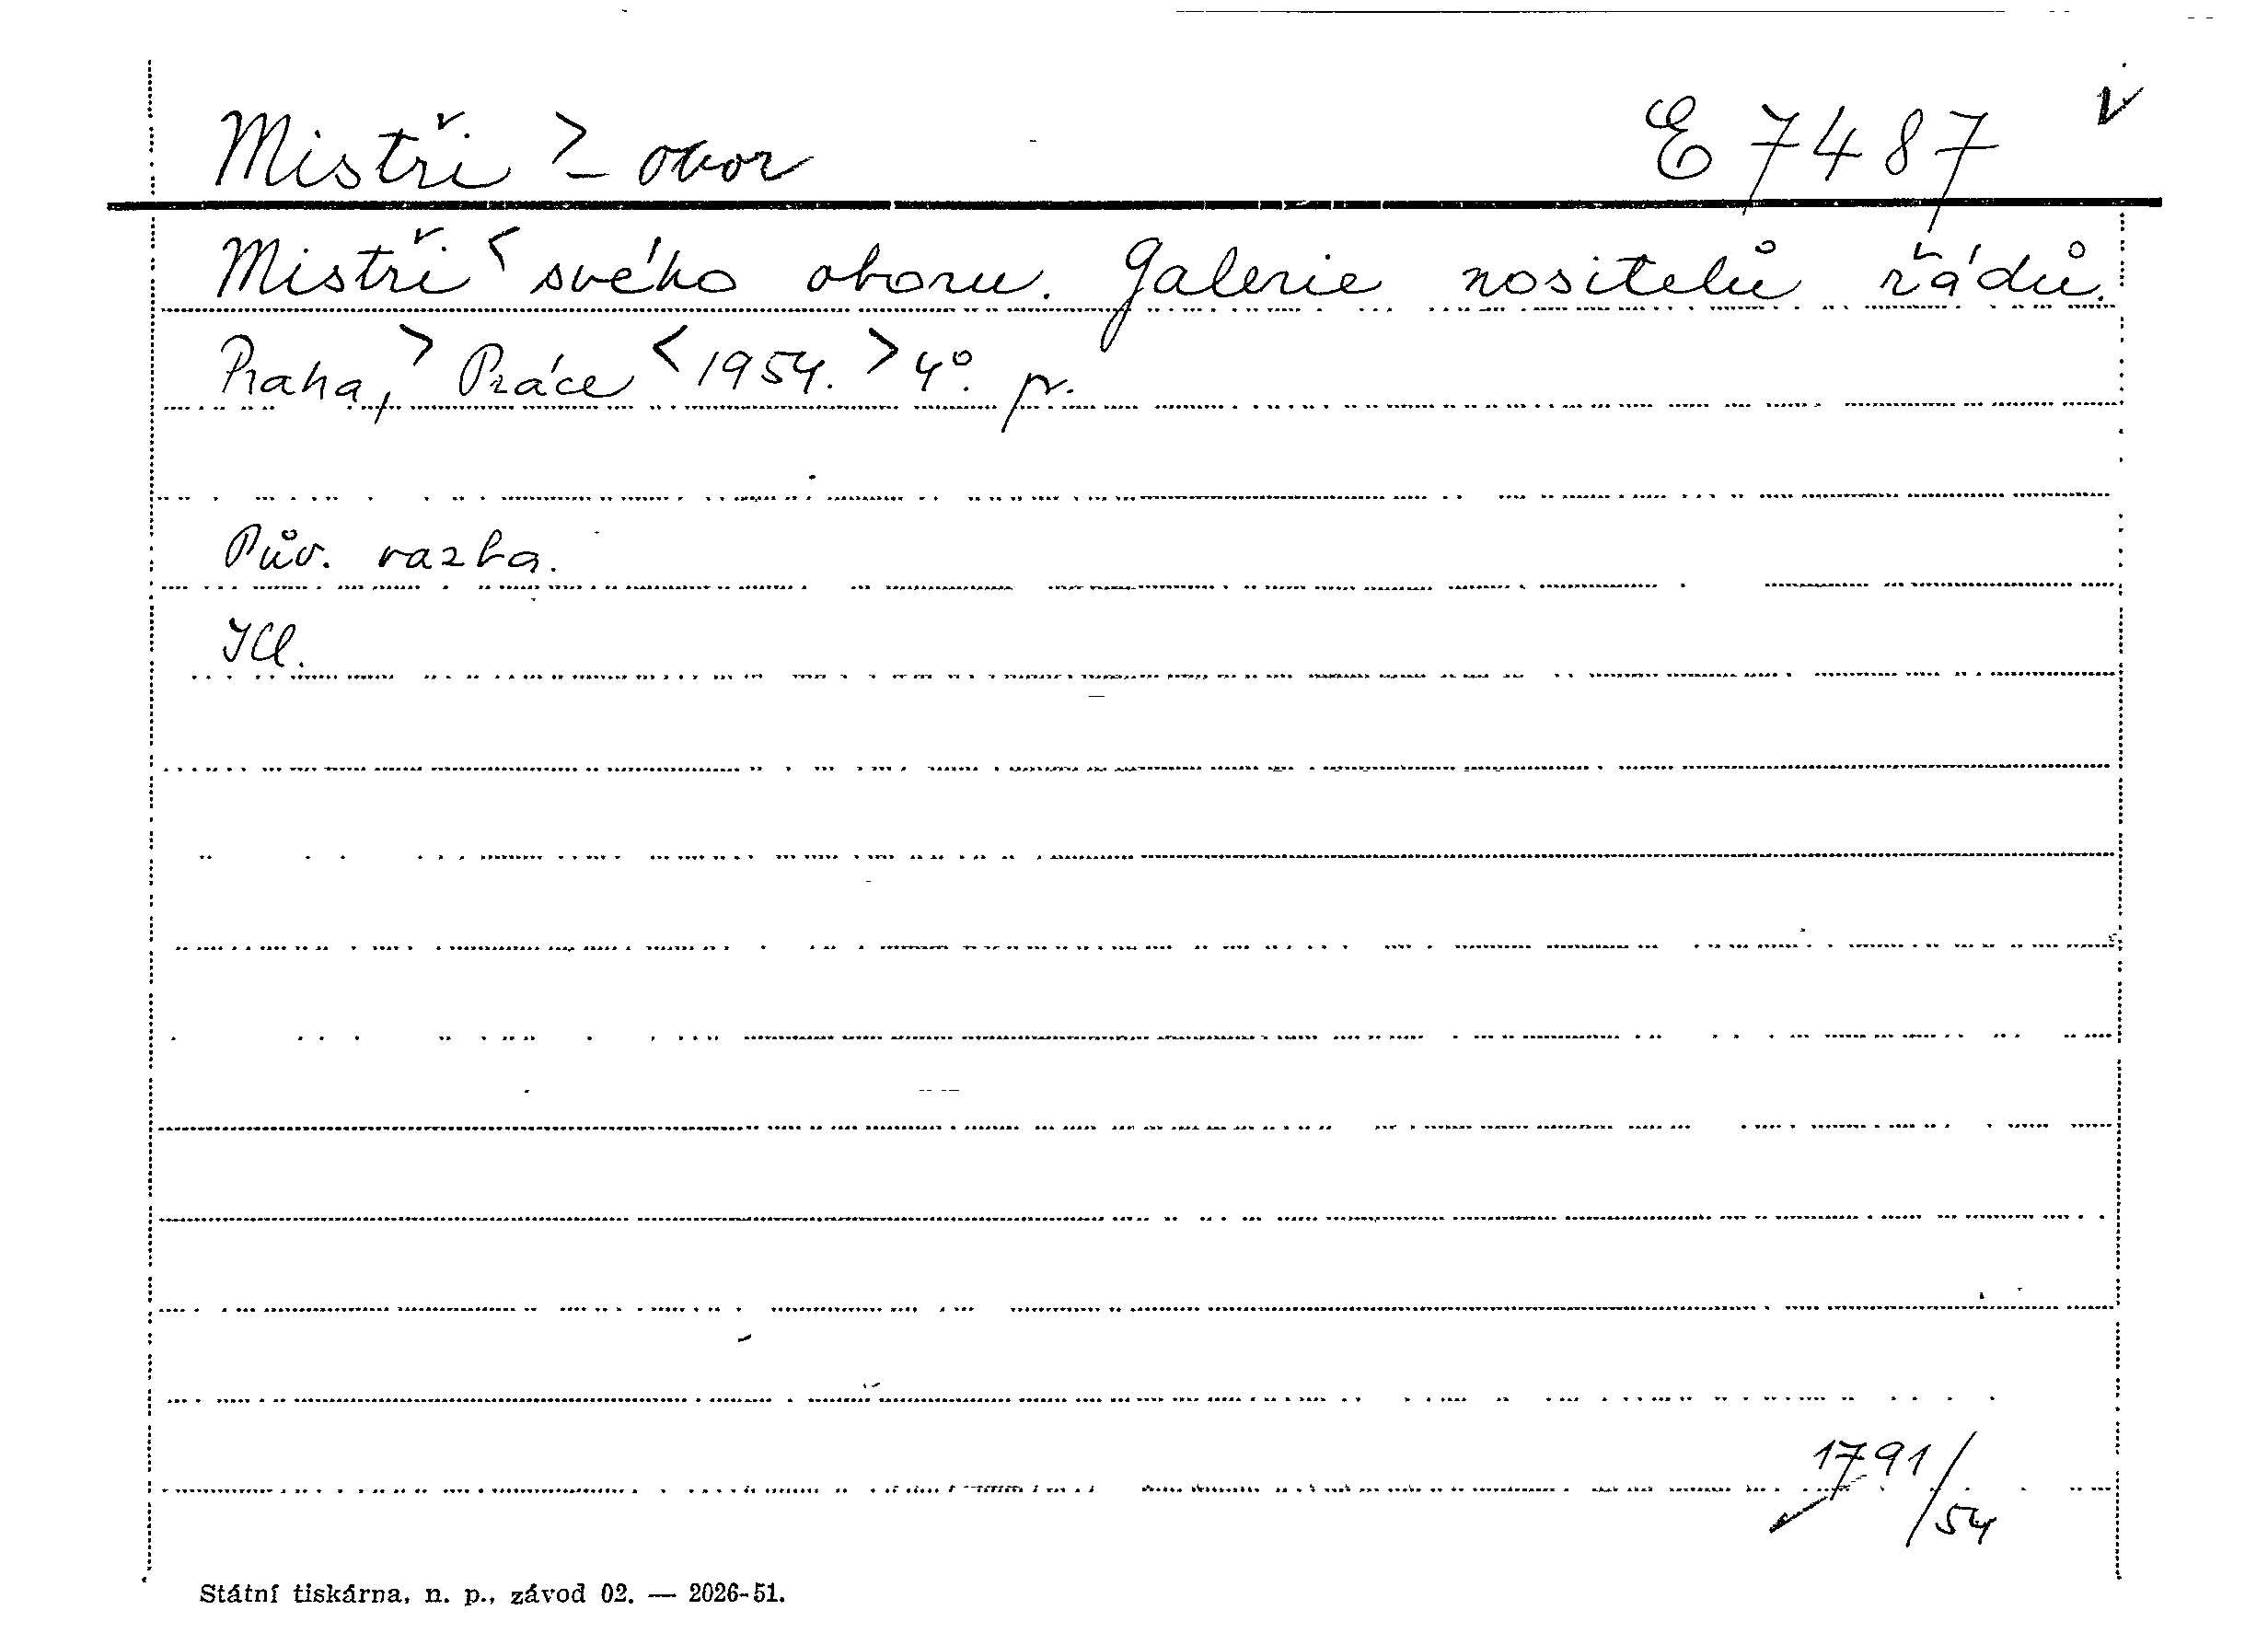 Mistři > - obor E 7487 v
Mistři < svého oboru. Galerie nositelů řádů.
Praha, > Práce < 1954. > 4°. pr.
Pův. vazba.
Kl.
1791/54
Státní tiskárna, n. p., závod 02. — 2026-51.